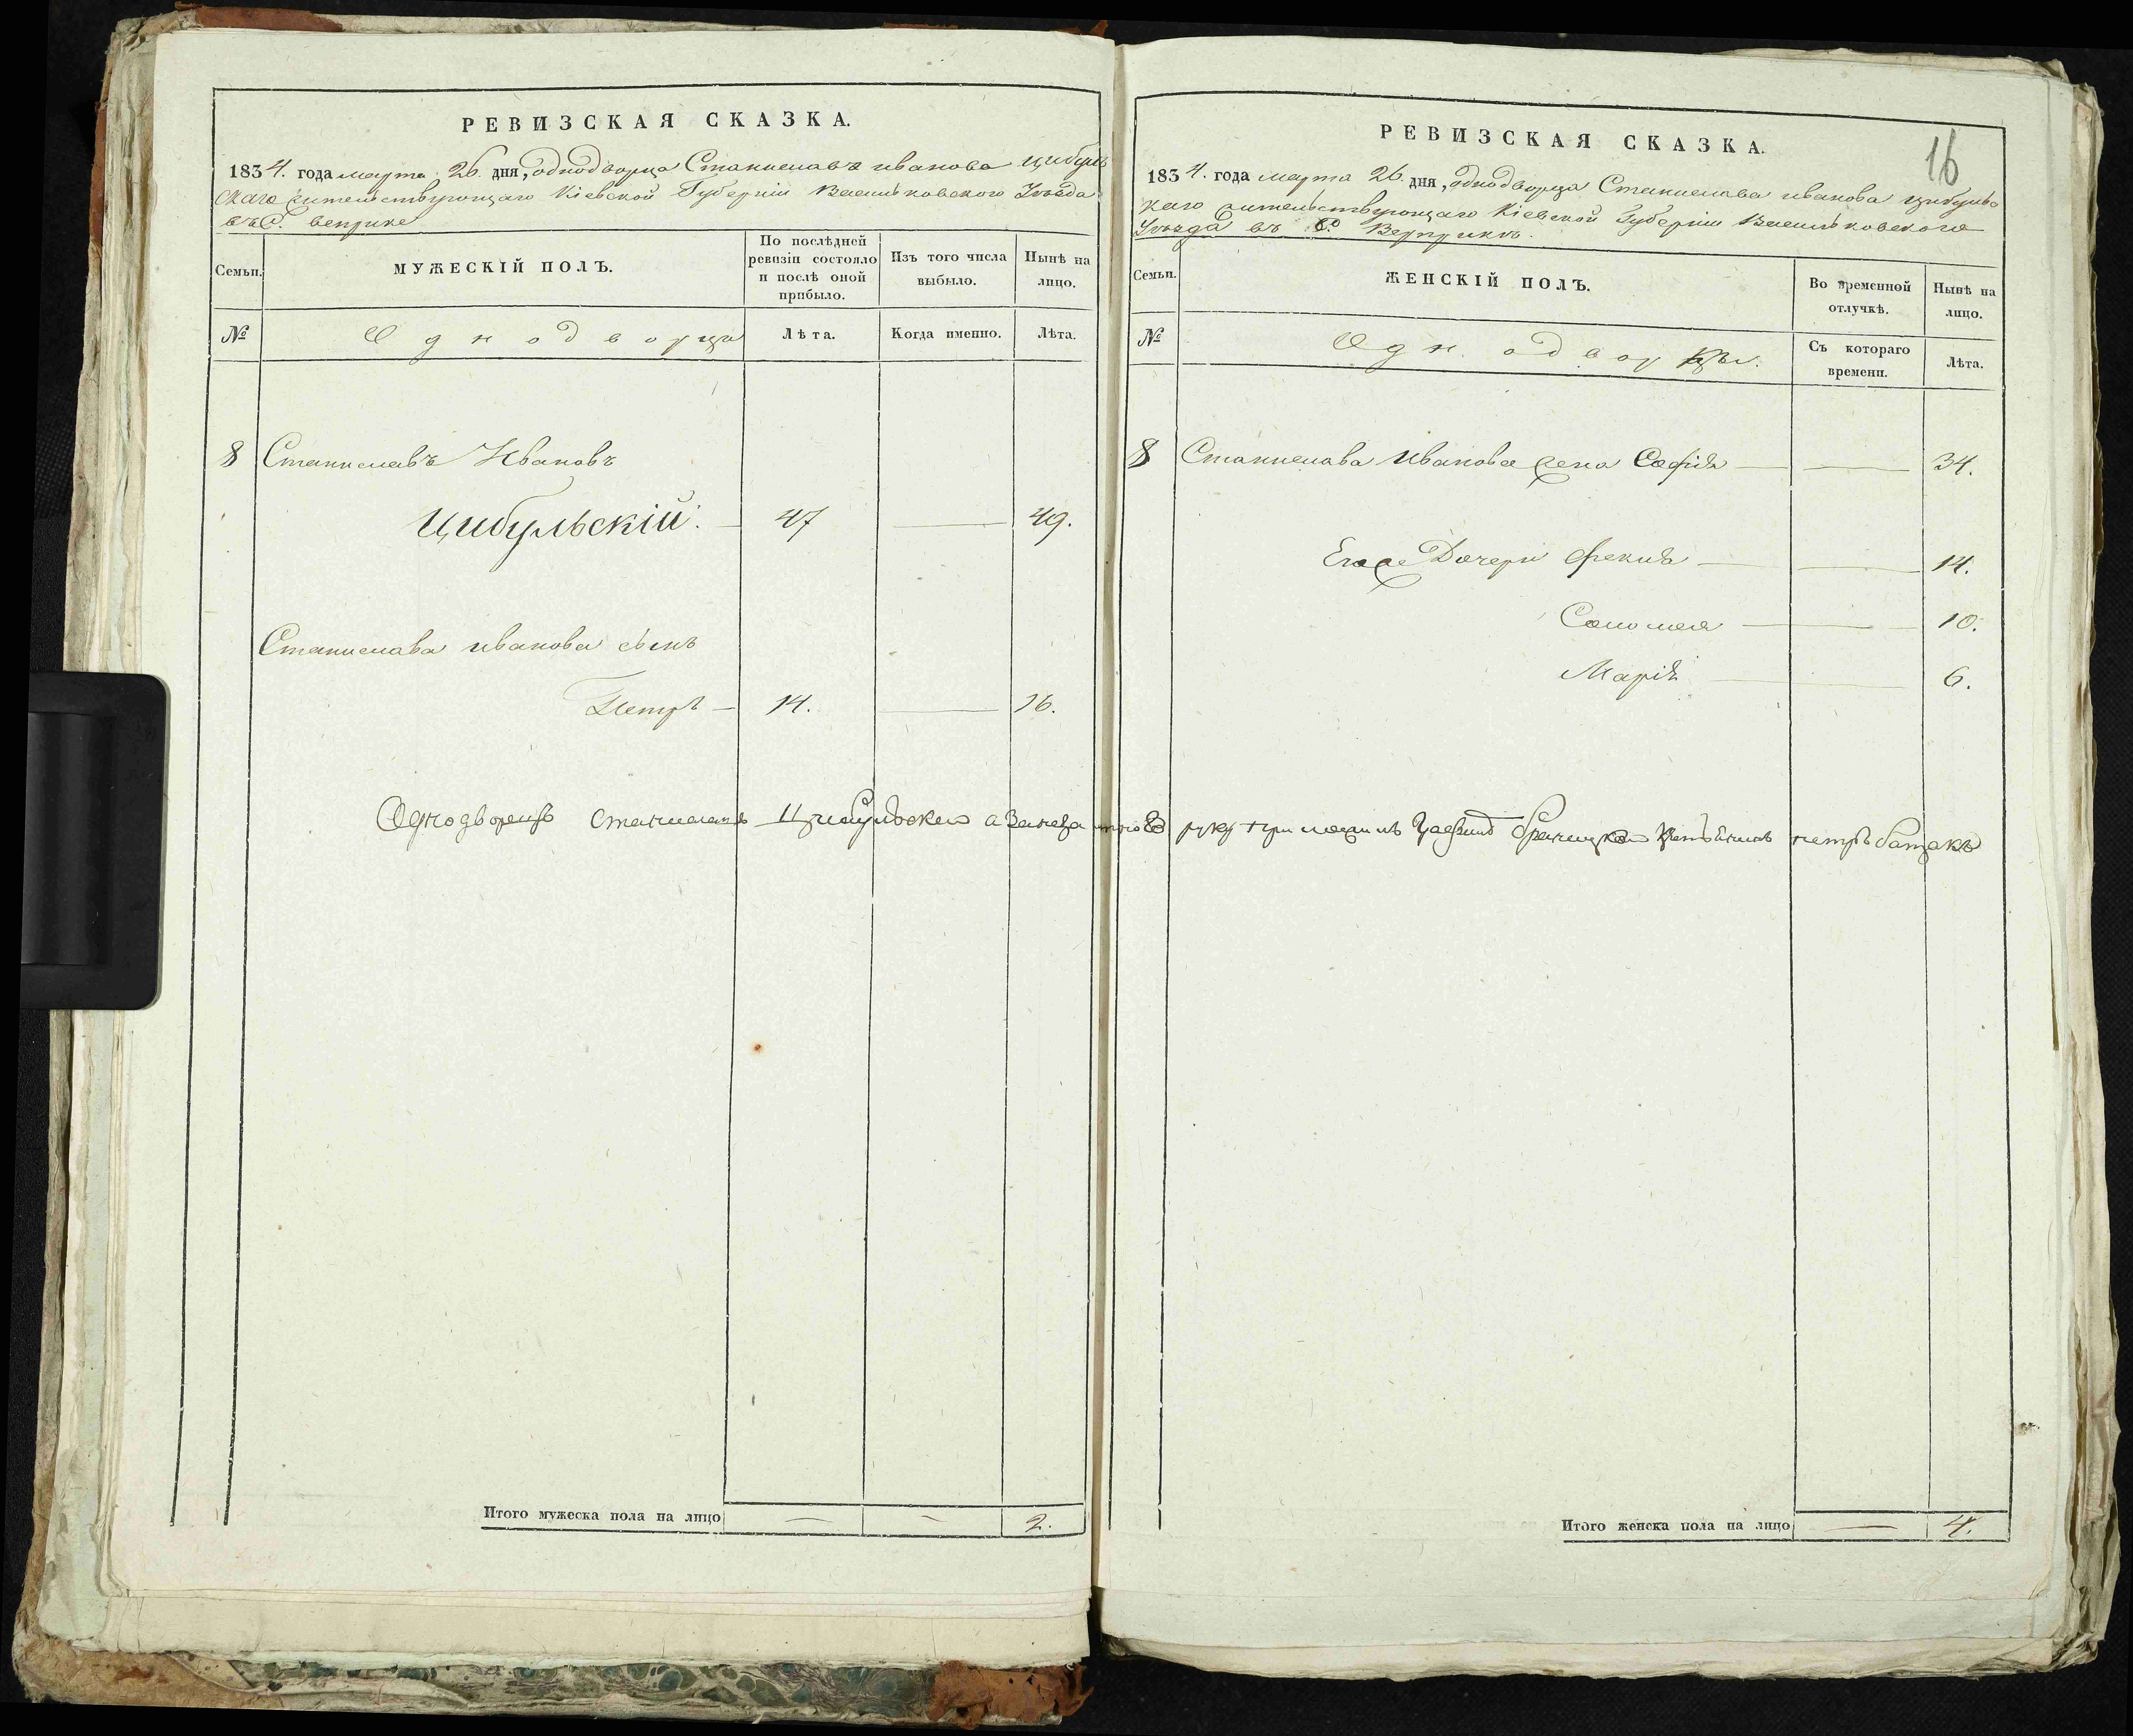 РЕВИЗСКАЯ СКАЗКА.
1834. года марта 26. дня, однодворца Станислава иванова цибуль
скаго жительствующаго Кіевской Губерніи Васильковского Уѣзда
въ С. веприке
Семьи.
МУЖЕСКІЙ ПОЛЪ.
По послѣдней ревизіи состояло и послѣ оной прибыло.
Изъ того числа выбыло.
Нынѣ на лицо.
№
Однодворца
Лѣта.
Когда именно.
Лѣта.
8 Станиславъ Ивановъ
Цибульскій. — 47 — 49.
Станислава иванова сынъ
Петръ — 14. — 16.
Итого мужеска пола на лицо — — 2.
16
РЕВИЗСКАЯ СКАЗКА.
1834. года марта 26. дня, однодворца Станислава иванова цибуль
каго жительствующаго Кіевской Губерніи Васильковского
Уѣзда въ С. Веприкѣ.
Семьи.
ЖЕНСКІЙ ПОЛЪ.
Во временной отлучкѣ.
Нынѣ на лицо.
№
Съ котораго времени.
Лѣта.
8 Станислава Иванова жена Софія — — 34.
Его же Дочери — — 14.
Саломея — — 10.
Марія — — 6.
Однодворецъ Станиславъ Цибульскій а за него руку приложилъ петръ
Итого женска пола на лицо — 4.